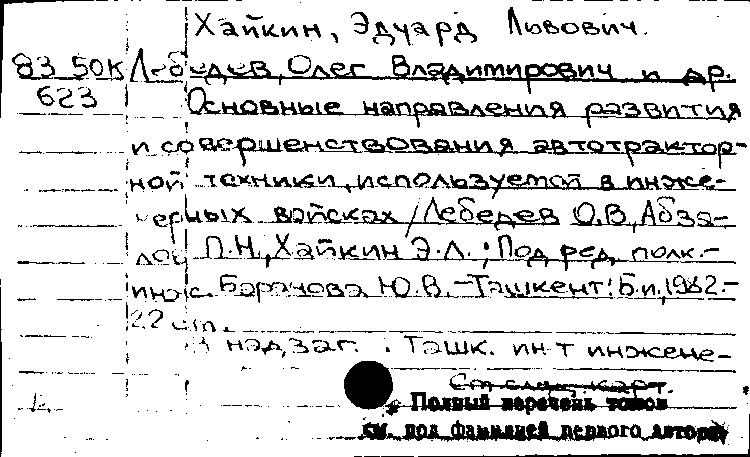 Хайкин, Эдуард Львович.
83 50К Лебедев, Олег Владимирович и др.
623 Основные направления развития
и совершенствования автотрактор-
ной техники, используемой в инже-
нерных войсках / Лебедев О.В, Абза-
лов П.Н, Хайкин Э.Л.; Под ред. полк.-
инж. Ю.В. - Ташкент: Б.и, 1982.-
22 см.
В надзаг. : Ташк. ин-т инжене-
См след. карт.
Полный перечень томов
см. под фамилией первого автора